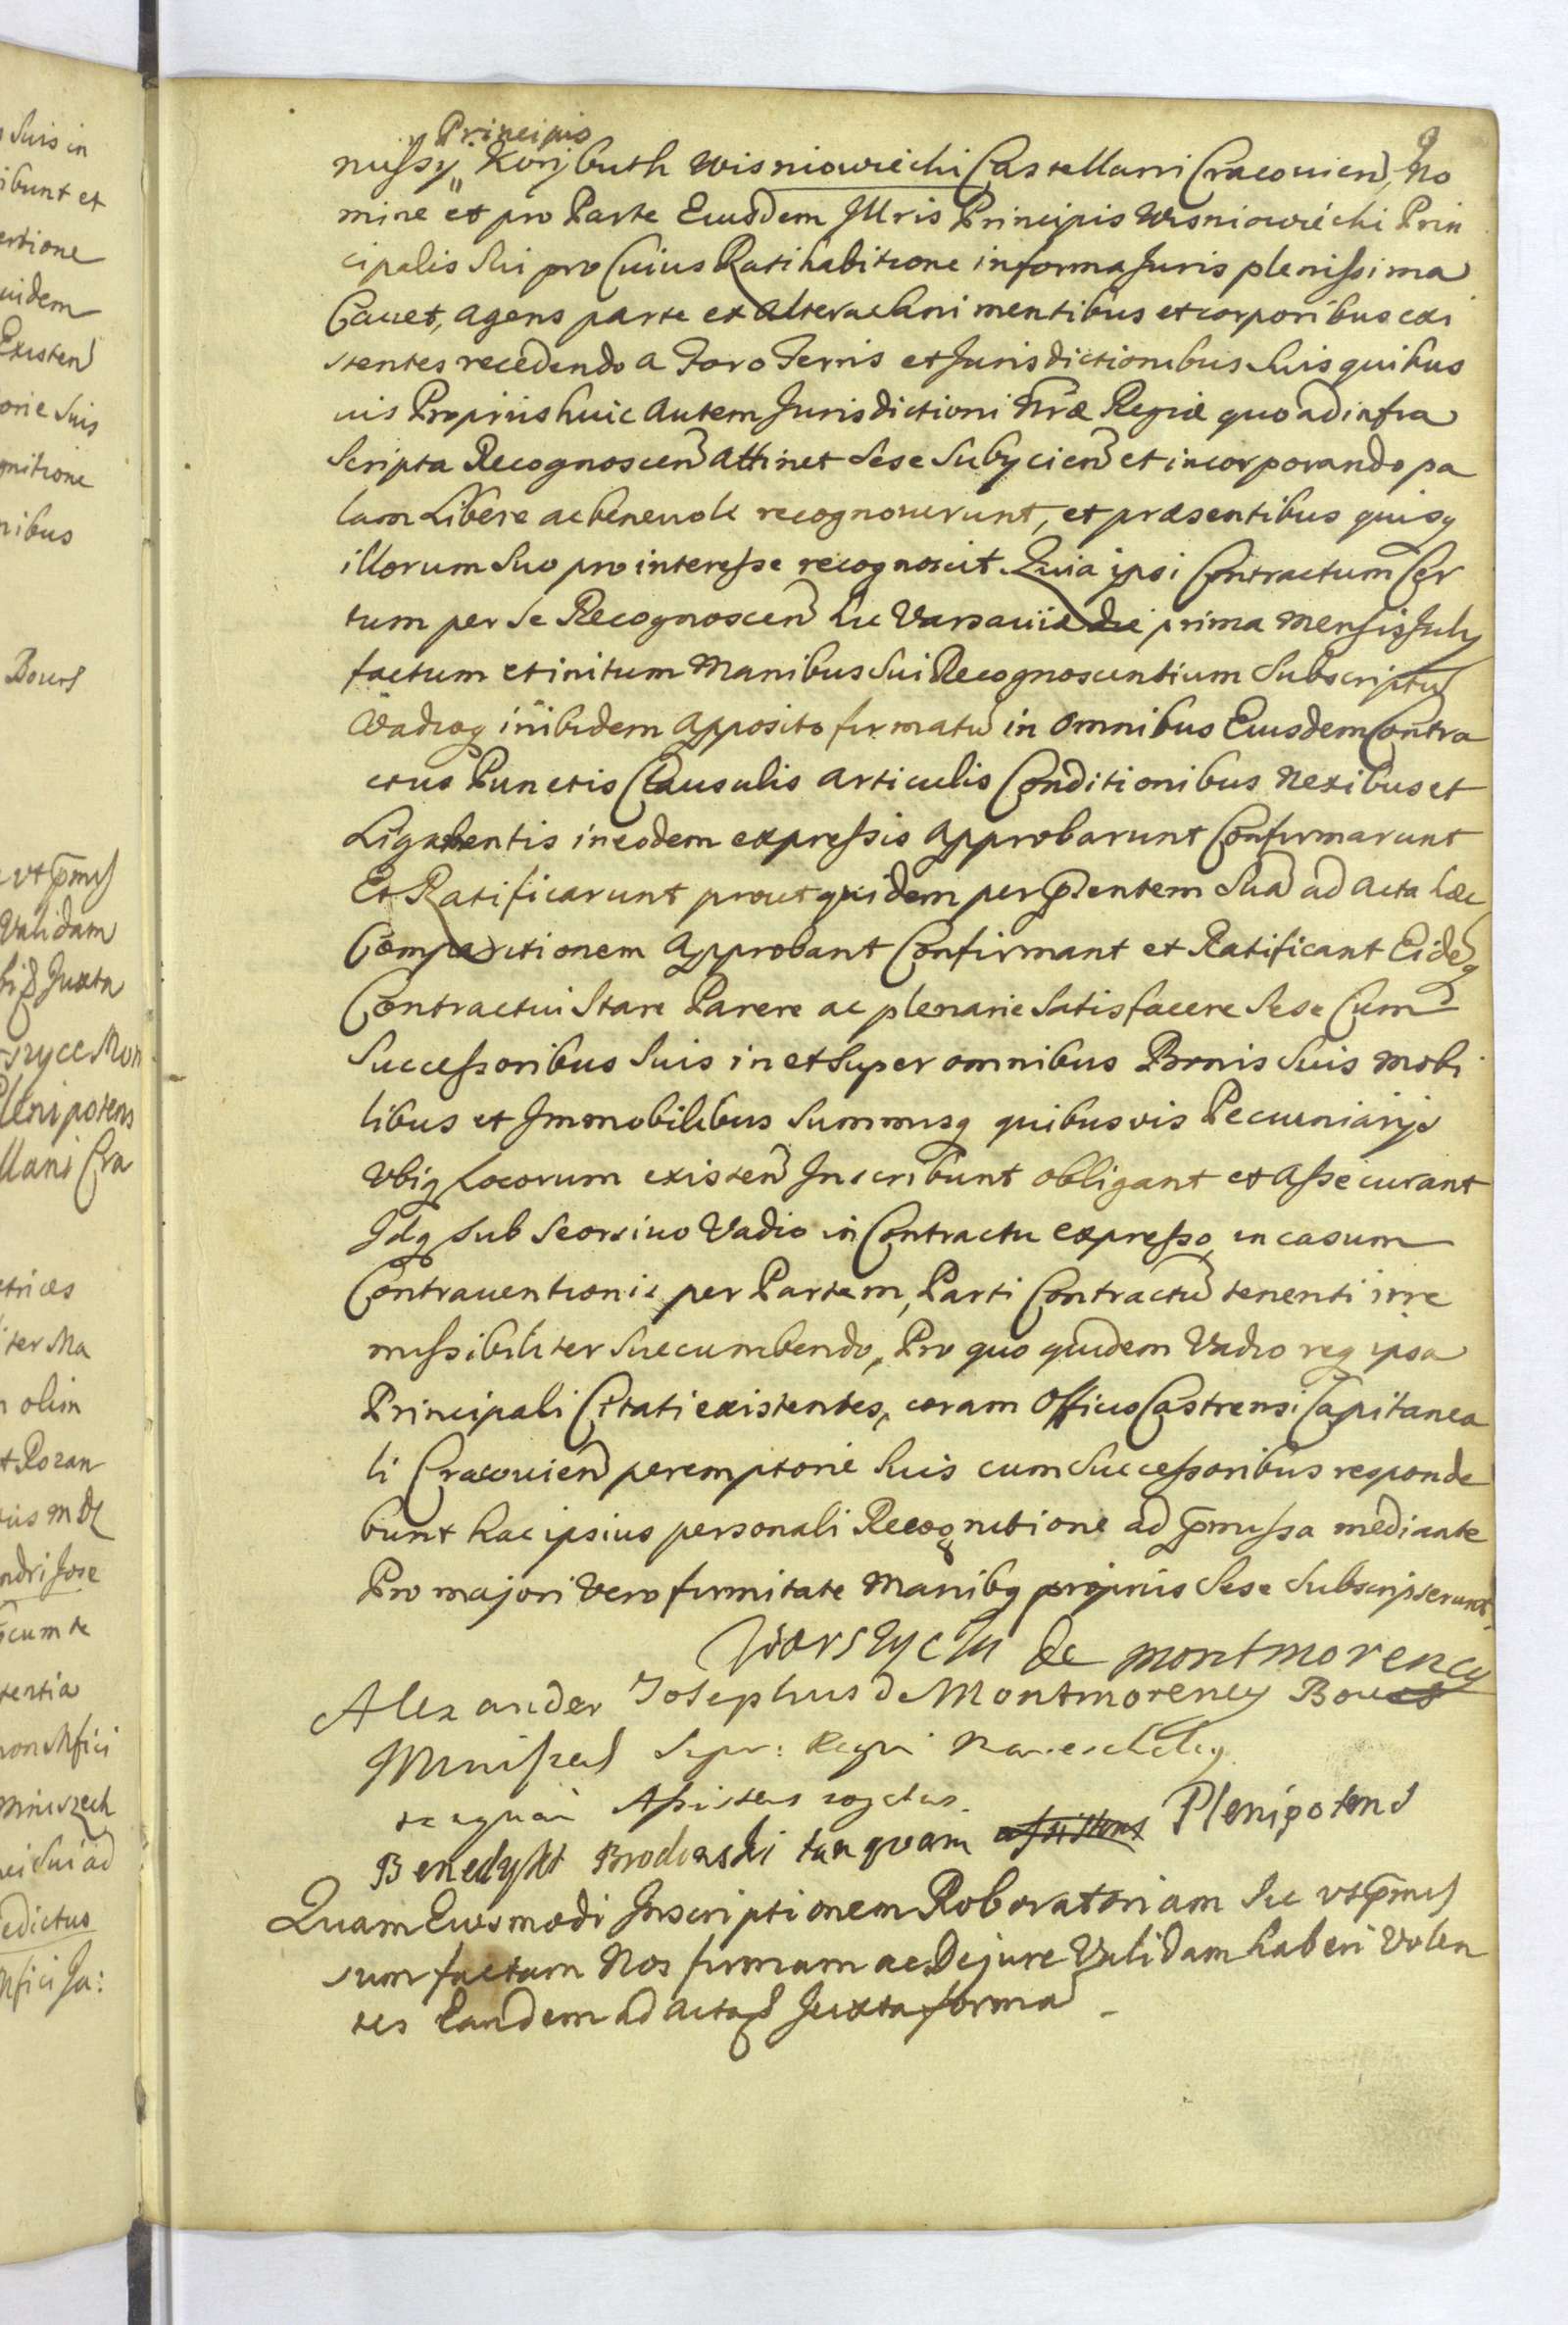 Principis
nussy Korybuth Wisniowiechi Castellani Cracovien, No
mine et pro Parte Eiusdem Illris Principis Wisniowiéchi Prin
cipalis Sui pro Cuius Ratihabitione in forma Juris plenissima
Cauet, agens parte ex altera sani mentibus et corporibus exi
stentes recedendo a Foro Terris et Jurisdictionibus Suis quibus
uis Propriis huic autem Jurisdictioni Nræ Regiæ quo ad infra
Scripta Recognoscen attinet Sese Subycien et incorporando pa
lam Libere ac beneuole recognouerunt, et præsentibus quisq
illorum Suo pro interesse recognoscit. Quia ipsi Contractum Cer
tum per Se Recognoscen hic Varsauiæ die prima Mensis July
factum et initum Manibus Sui Recognoscentium Subscriptu
Vadioq inibidem apposito firmatu in omnibus Eiusdem Contra
ctus Punctis Clausulis articulis Conditionibus Nexibus et
Ligamentis in eodem expressis approbarunt Confirmarunt
Et Ratificarunt prout quidem per p̃sentem Suã ad acta hæc
Comparitionem approbant Confirmant et Ratificant Eidẽq
Contractui Stare Parere ac plenarie Satisfacere Sese Cum
Successoribus Suis in et Super omnibus Bonis Suis mobi
libus et Immobilibus Summisq quibusvis Pecuniarijs
Vbiq Locorum existen Inscribunt obligant et assecurant
Idq sub Seorsiuo Vadio in Contractu expresso in casum
Contrauentionis per Partem, Parti Contractũ tenenti irre
missibiliter Succumbendo, Pro quo quidem Vadio req ipsa
Principali Citati existentes, coram Officio Castrensi Capitanea
li Cracouien peremptorie Suis cum Successoribus responde
bunt hac ipsius personali Recognitione ad p̃missa mediante
Pro majori Vero firmitate Manibq proprius Sese Subscripserunt,
de montmorency
Alexander Josephus de Montmorency Bours
Mniszech Supr: Regni
Assistens rogatus.
Benedykt tanquam assistens Plenipotens
Quam Eiusmodi Inscriptionem Roboratoriam Sic vt p̃mis
sum factam Nos firmam ac De jure Validam haberi Volen
tes Eandem ad acta Juxta forma